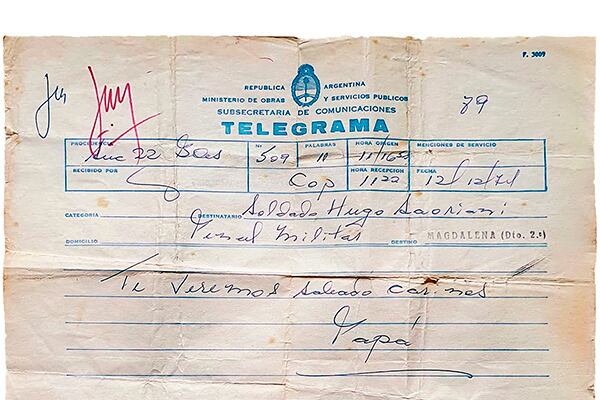 F. 3009
REPUBLICA ARGENTINA
MINISTERIO DE OBRAS Y SERVICIOS PUBLICOS
SUBSECRETARIA DE COMUNICACIONES
79
TELEGRAMA
PROCEDENCIA Nº PALABRAS HORA ORIGEN MENCIONES DE SERVICIO
Suc 22 509 11
RECIBIDO POR HORA RECEPCION FECHA
Cop 1122 12/12/74
CATEGORIA DESTINATARIO Soldado Hugo
DOMICILIO Penal Militar DESTINO MAGDALENA (Dto. 2.º)
Te Veremos sabado cariños
Papá